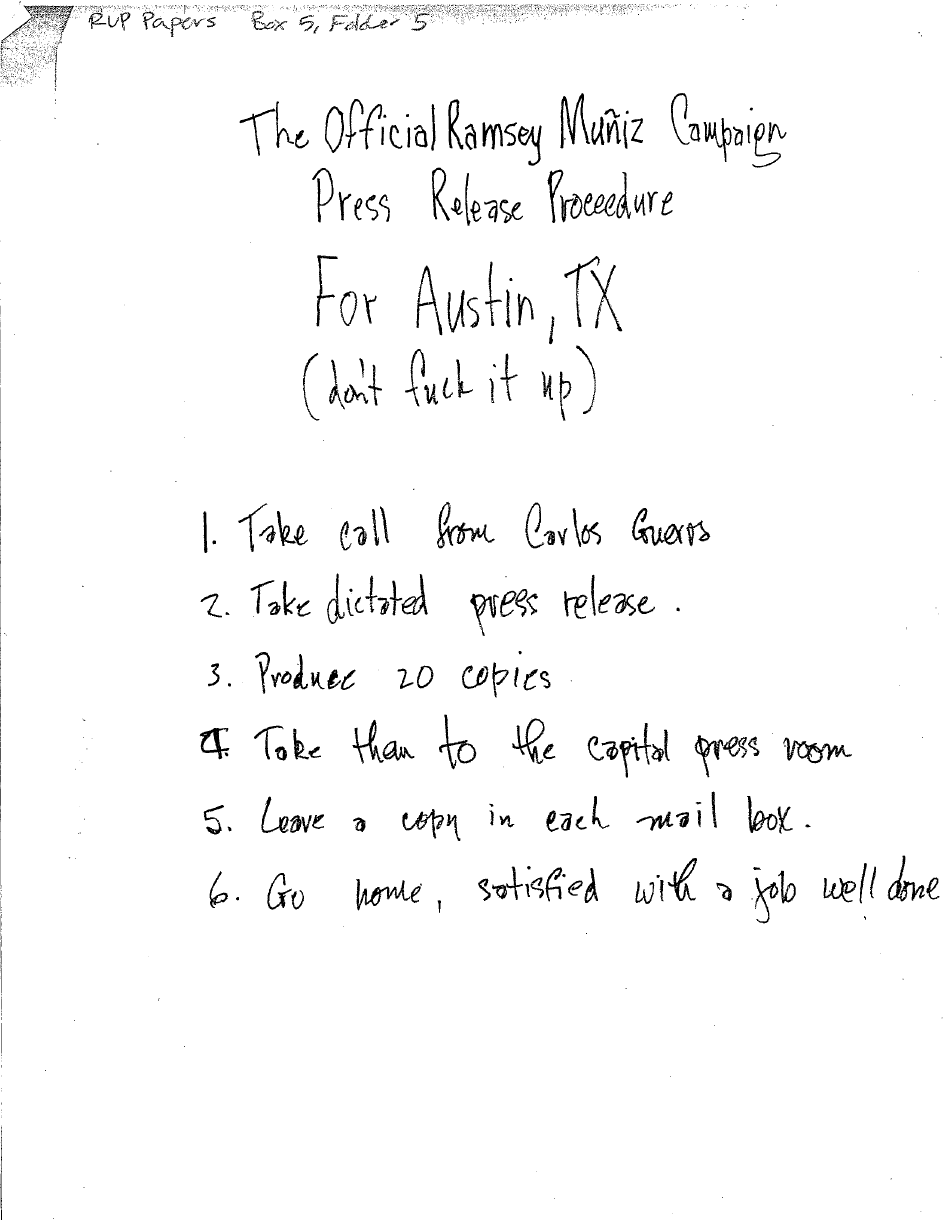 RUP Papers Box 5, Folder 5
The Official Ramsey Muñiz Campaign
Press Release Proceedure
For Austin, TX
(don't fuck it up)
1. Take call from Carlos Guerra
2. Take dictated press release.
3. Produce 20 copies
4. Take them to the capital press room
5. Leave a copy in each mail box.
6. Go home, satisfied with a job well done